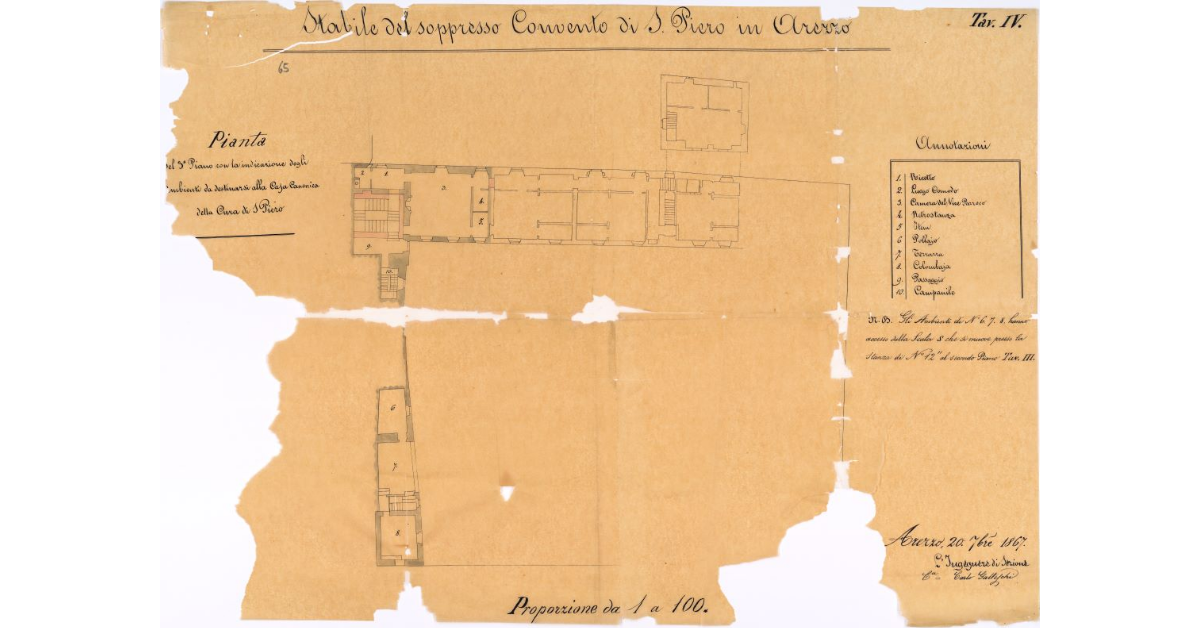 Stabile del soppresso Convento di S. Piero in Arezzo
Tav. IV.
65
Pianta
del 3° Piano con la indicazione degli
ambienti da destinarsi alla Casa Canonica
della Cura di S. Piero
Annotazioni
1. Ricetto
2. Luogo Comodo
3. Camera del Vice Parroco
4. Retrostanza
5.
6. Pollajo
7. Terrazza
8. Colombaja
9. Passaggio
10. Campanile
N. B. Gli Ambienti di N° 6. 7. 8. hanno
accesso dalla Scala S che si muove presso la
stanza di N° 12" al secondo Piano Tav. III.
2.
1.
3.
4
5
9.
10.
6
7
8
Arezzo, 20. 7bre 1867.
L'Ingegnere di Sezione
Carlo
Proporzione da 1 a 100.